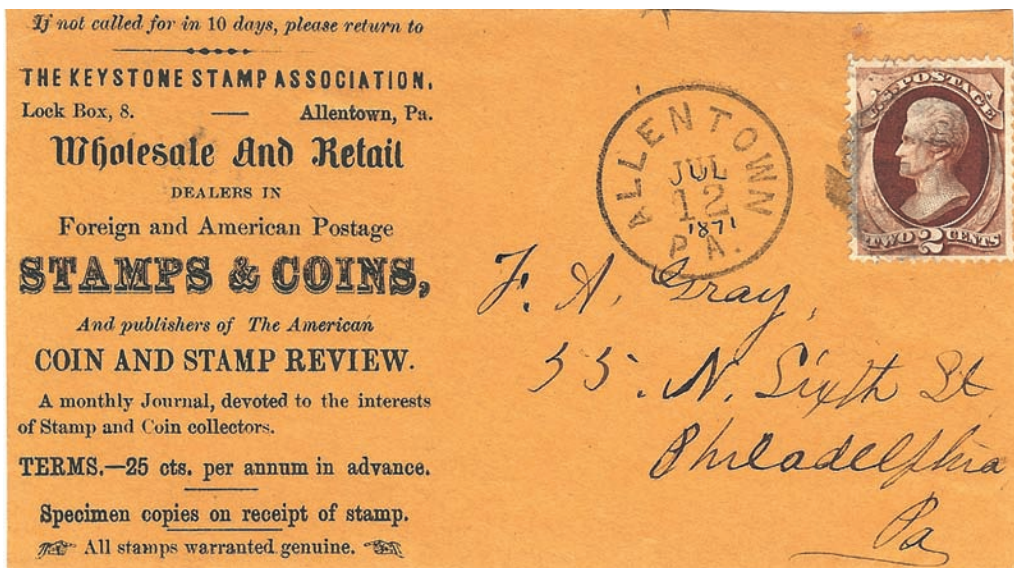 If not called for in 10 days, please return to
THE KEYSTONE STAMP ASSOCIATION,
Lock Box, 8. — Allentown, Pa.
Wholesale And Retail
DEALERS IN
Foreign and American Postage
STAMPS & COINS,
And publishers of The American
COIN AND STAMP REVIEW.
A monthly Journal, devoted to the interests
of Stamp and Coin collectors.
TERMS.—25 cts. per annum in advance.
Specimen copies on receipt of stamp.
All stamps warranted genuine.
ALLENTOWN
JUL
12
1871
PA.
U.S. POSTAGE
TWO 2 CENTS
F. A. Gray,
55. N. Sixth St
Philadelphia
Pa